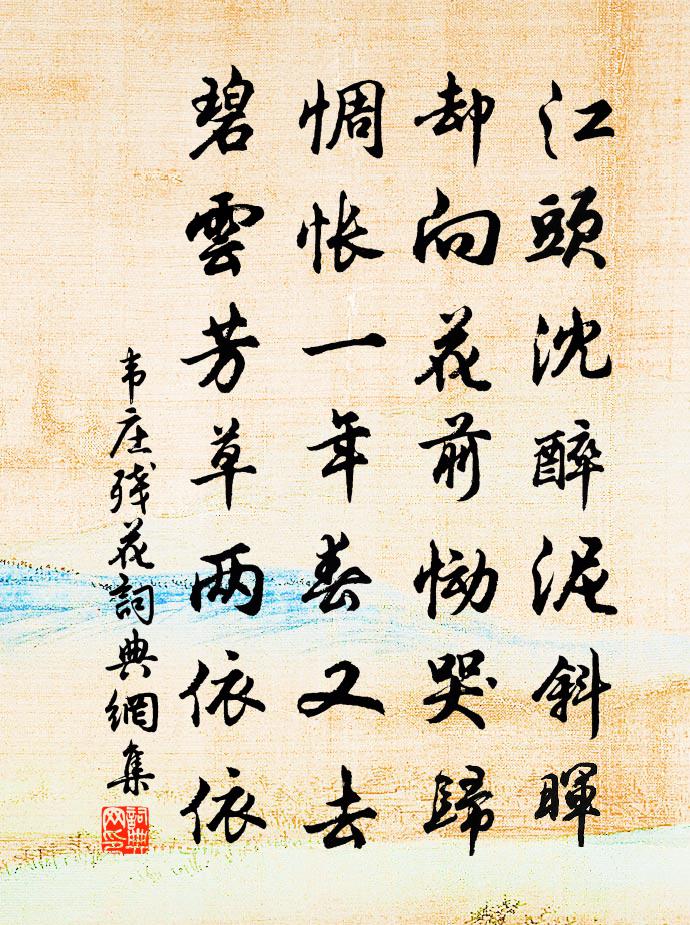 江頭沈醉泥斜暉
却向花前慟哭歸
惆悵一年春又去
碧雲芳草兩依依
韦庄残花詞典網集
詞典网印